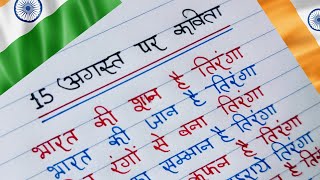 15 अगस्त पर कविता
भारत की शान है तिरंगा
भारत की जान है तिरंगा
रंगों से बना तिरंगा
सम्मान है तिरंगा
कफन है तिरंगा
तिरंगा